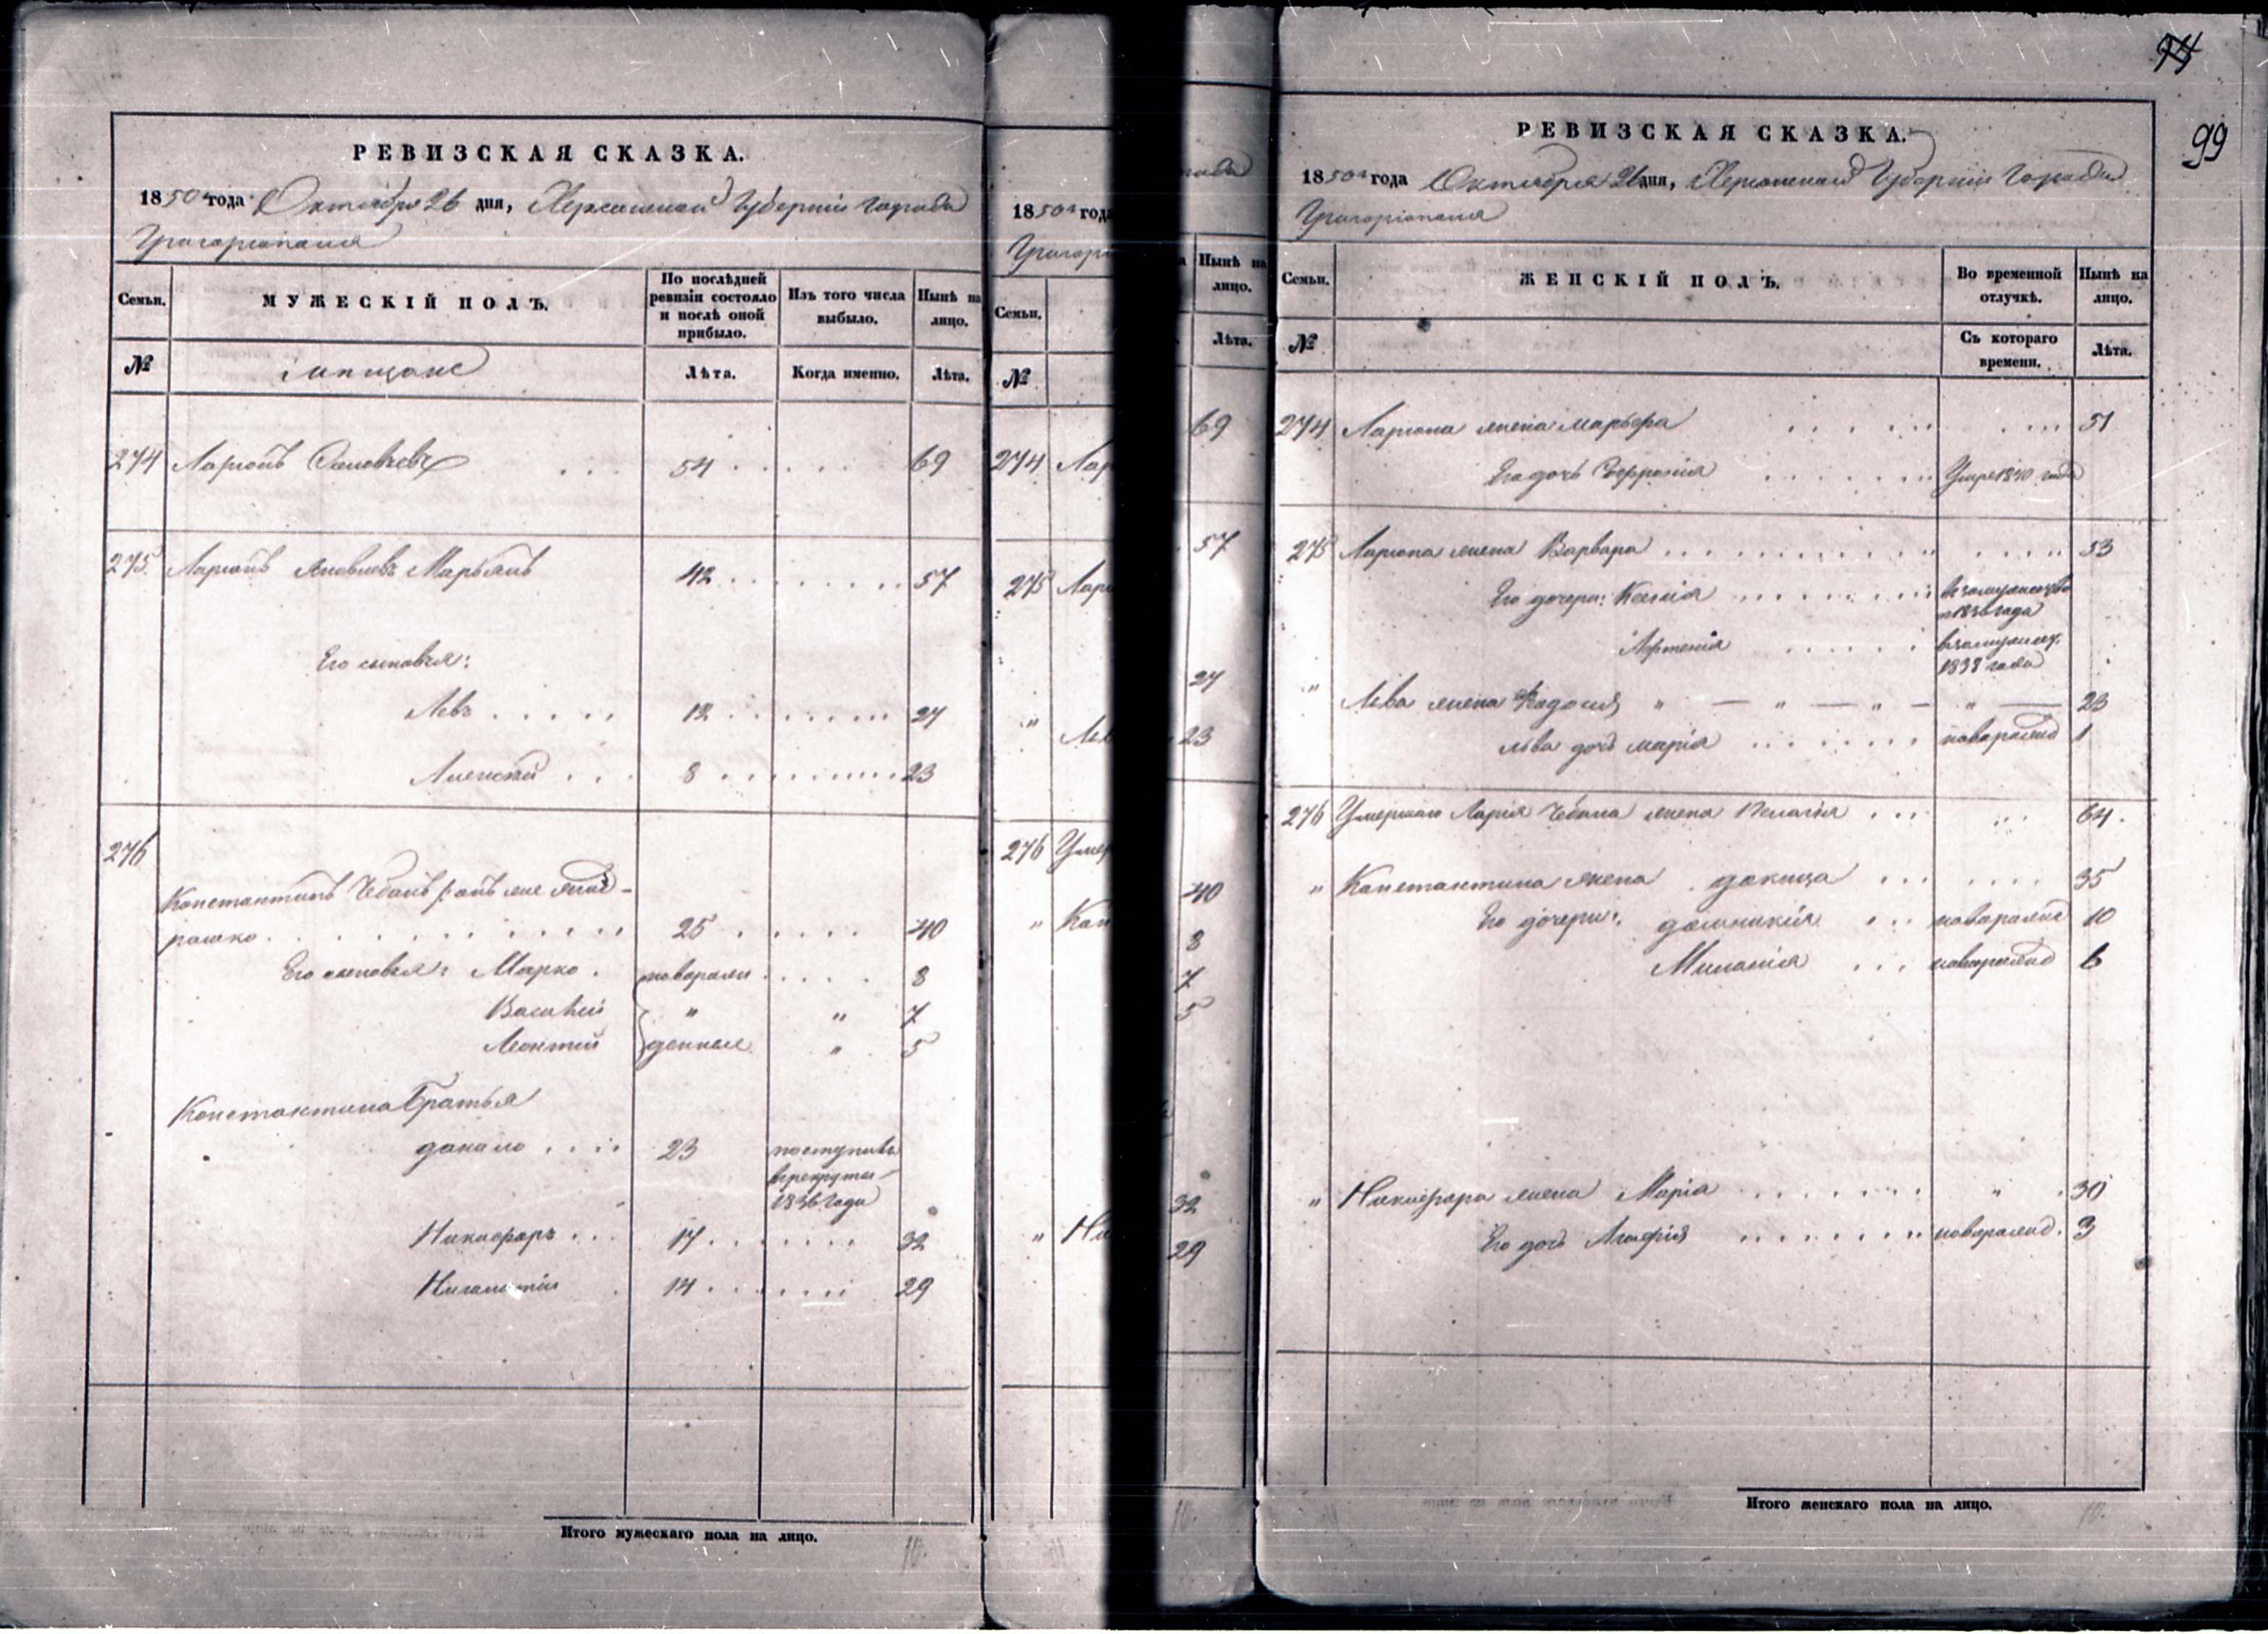 РЕВИЗСКАЯ СКАЗКА.
1850го года Октября 26 дня, Херсонской Губернiи города
Григорiополя
Семьи. МУЖЕСКIЙ ПОЛЪ. По послѣдней ревизiи состояло и послѣ оной прибыло. Изъ того числа выбыло. Нынѣ на лицо.
№ мещане Лѣта. Когда именно. Лѣта.
274 Ларiонъ 54 69
275 Ларiонъ Яковлевъ Марьянъ 42 57
Его сыновья:
Левъ 12 27
8 23
276
Константинъ Чебанъ онъ же
рашко 25 40
Его сыновья: Марко новорож 8
Василiй " " 7
Леонтiй денные " 5
Константина Братья
данило 23 поступилъ
в рекруты
1836 года
Никифоръ 17 32
14 29
Итого мужескаго пола на лицо.
10.
1850го года
Григорi
Семьи.
№
274 Лар
275 Лар
" Льв
276 Умер
" Кон
" Ни
рода
Нынѣ на лицо.
Лѣта.
69
57
27
23
40
8
7
5
32
29
10.
74
99
РЕВИЗСКАЯ СКАЗКА.
1850го года Октября 26 дня, Херсонской Губернiи Города
Григорiополя
Семьи. ЖЕНСКIЙ ПОЛЪ. Во временной отлучкѣ. Нынѣ на лицо.
№ Съ котораго времени. Лѣта.
274 Ларiона жена Марьфра 51
Его дочь Умре 1840 года
275 Ларiона жена Варвара 53
Его дочери: Ксенiя в замужество
1836 года
в замужес.
1838 года
" Льва жена Фадосiя " " " " 23
льва дочь марiя новорожд 1
276 Умершаго Чебана жена Пелагiя 64.
" Константина жена докица 35
Его дочери: домникiя новорожд 10
Миланiя новорожд 6
" Никифора жена Марiя " 30
Его дочь Агафiя новорожд. 3
Итого женскаго пола на лицо.
10.